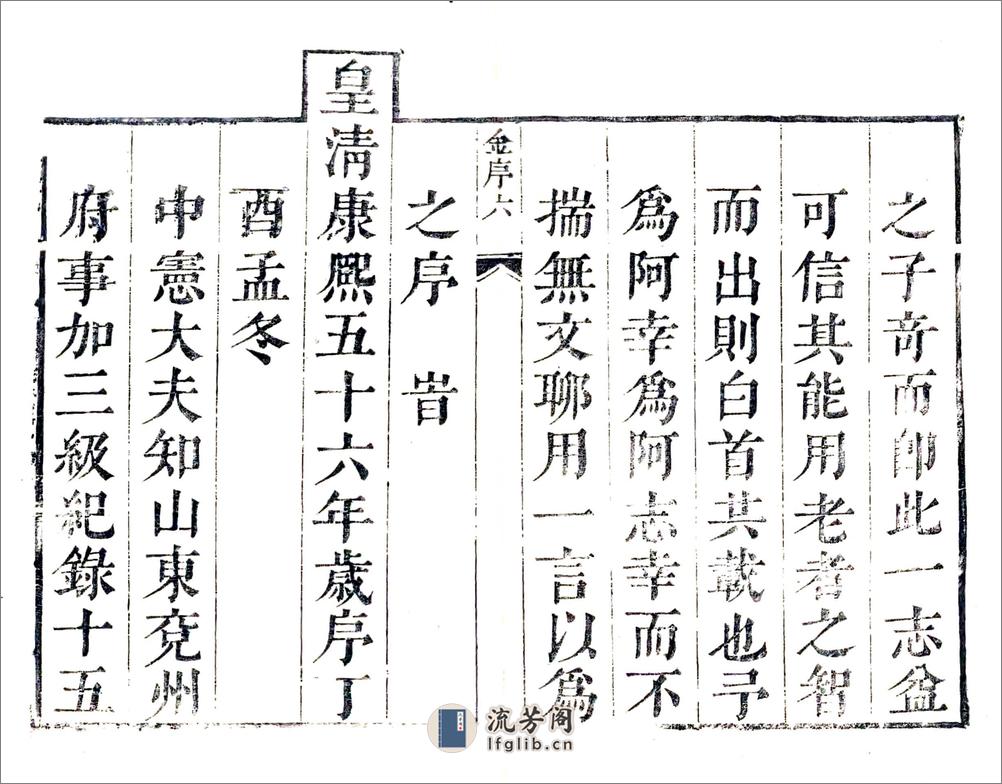 之子竒而即此一志益
可信其能用老者之智
而出則白首共載也予
爲阿幸爲阿志幸而不
揣無文聊用一言以爲
金序六
之序 旹
皇清康熙五十六年歲序丁
酉孟冬
中憲大夫知山東兗州
府事加三級紀錄十五
流芳阁
lfglib.cn